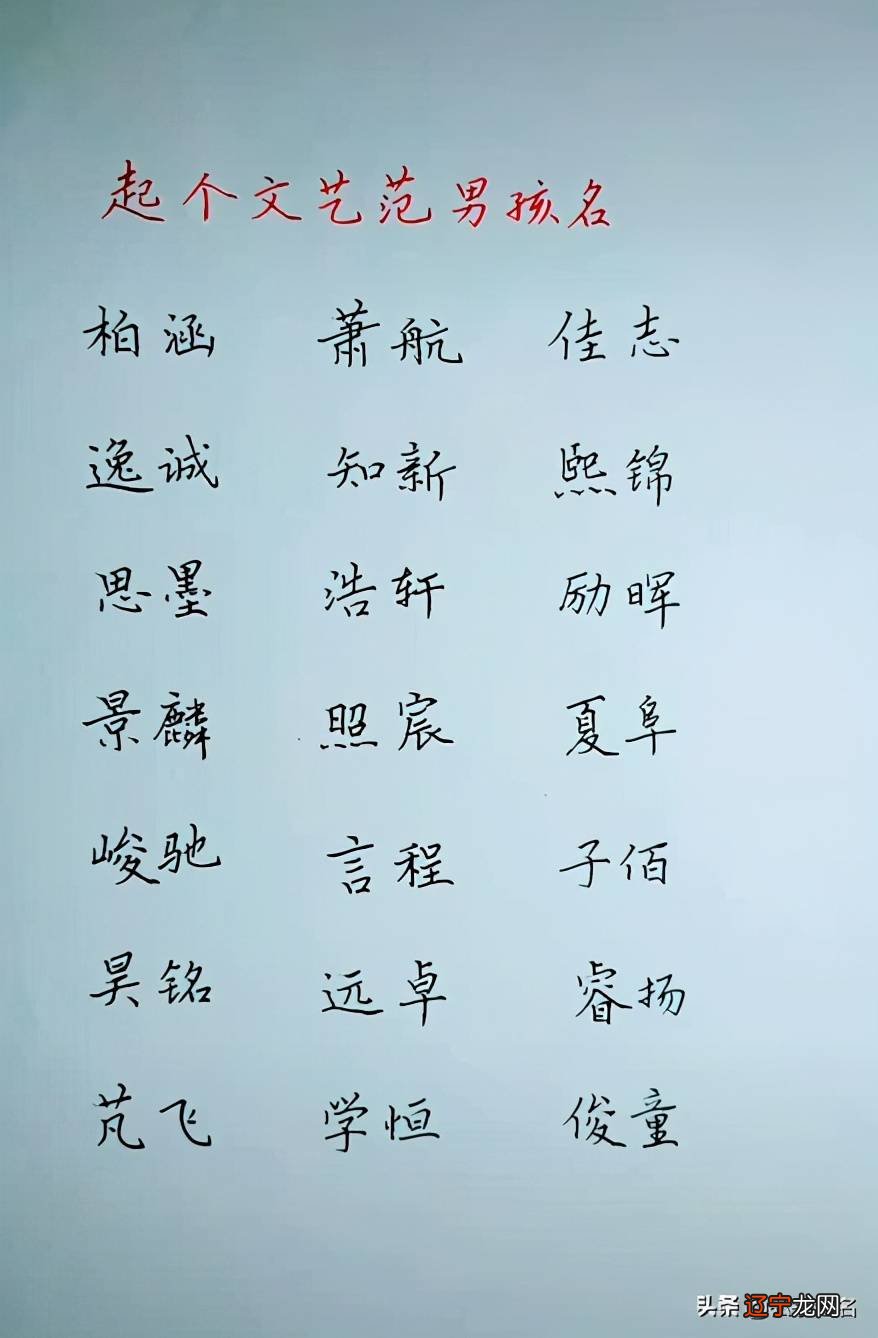 起个文艺范男孩名
柏涵 萧航 佳志
逸诚 知新 熙锦
思墨 浩轩 励晖
景麟 照宸 夏阜
峻驰 言程 子佰
昊铭 远卓 睿扬
芃飞 学恒 俊童
头条 辽宁龙网名